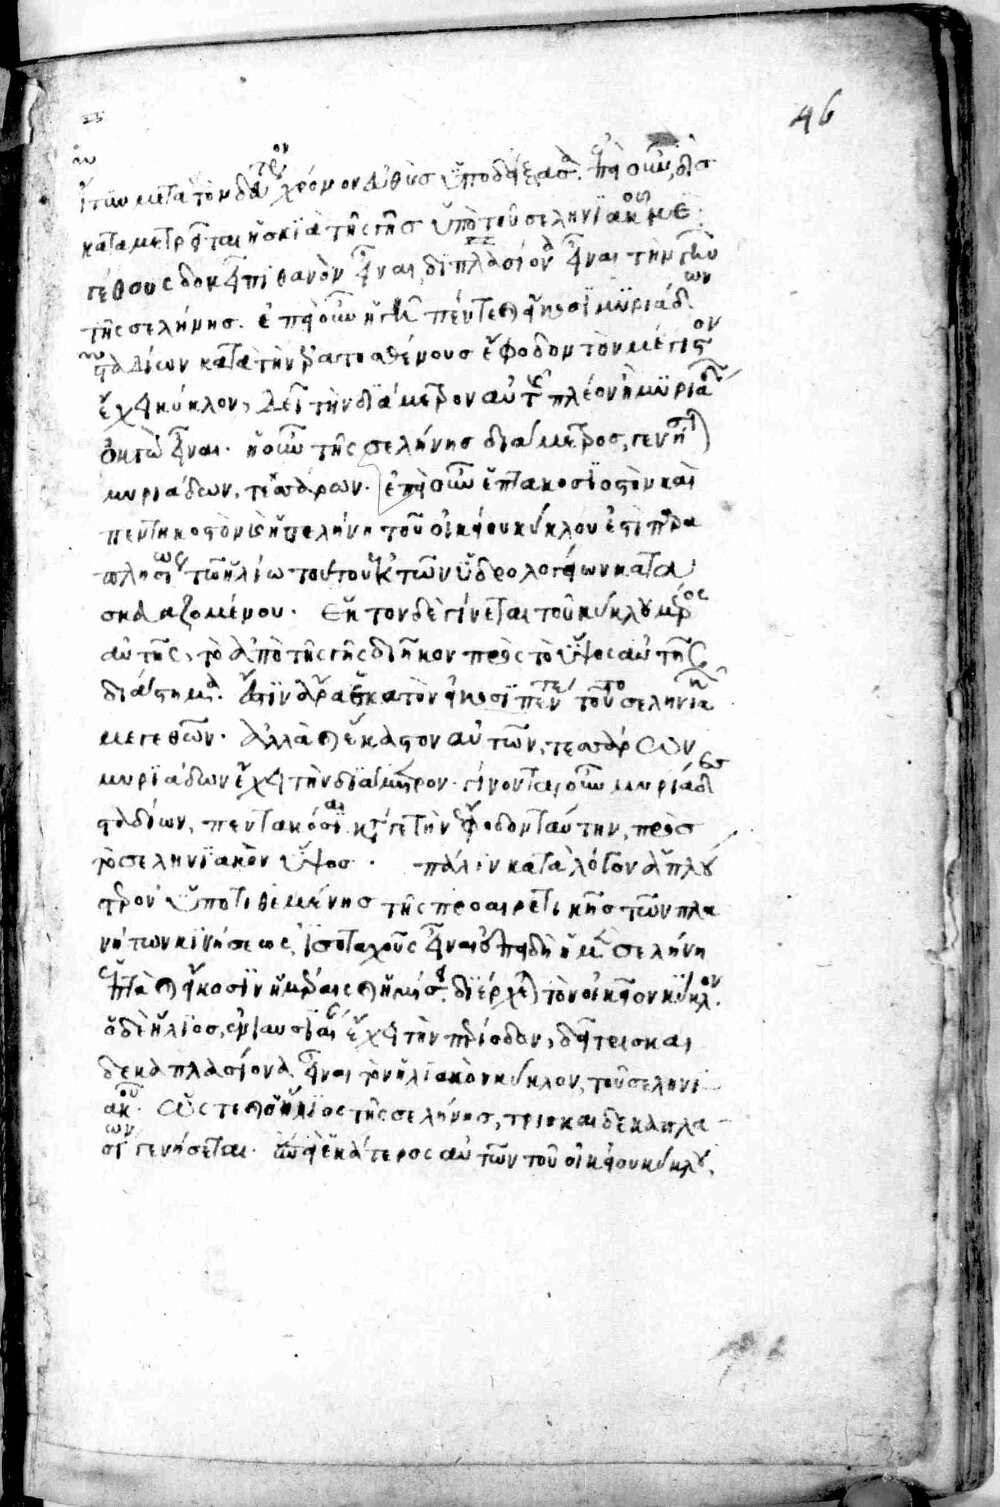 46
ἥττω μετὰ τὸν δεύτερον χρόνον εὐθὺς ὑποδείξασα. ἐπεὶ οὖν δὶς
καταμετρεῖται ἡ σκιὰ τῆς γῆς ὑπὸ τοῦ σεληνιακοῦ με
γέθους δοκεῖ πιθανὸν εἶναι, διπλασίονα εἶναι τὴν γῆν
τῆς σελήνης. ἐπεὶ οὖν ἡ γῆ πέντε καὶ εἴκοσι μυριάδων
σταδίων κατὰ τὴν ἐρατοσθένους ἔφοδον τὸν μέγιστον
ἔχει κύκλον, δεῖ τὴν διάμετρον αὐτῆς πλέον ἢ μυριάδων
ὀκτὼ εἶναι. ἡ οὖν τῆς σελήνης διάμετρος, γενήσεται
μυριάδων, τεσσάρων. ἐπεὶ οὖν ἑπτακοσιοστὸν καὶ
πεντηκοστόν ἐστι ἡ σελήνη τοῦ οἰκείου κύκλου ἐπίσης παρα
πλησίως τῶ ἡλίω τούτου ἐκ τῶν ὑδρολογείων κατα
σκευαζομένου. ἕκτον δὲ γίνεται τοῦ κύκλου μέρος
αὐτῆς, τὸ ἀπὸ τῆς γῆς διῆκον πρὸς τὸ ὕψος αὐτῆς
διάστημα. ἔστιν ἄρα ἑκατὸν εἴκοσι πέντε τοῦτο τοῦ σεληνιακοῦ
μεγεθῶν. ἀλλὰ καὶ ἕκαστον αὐτῶν, τεσσάρων
μυριάδων ἔχει τὴν διάμετρον. γίνονται οὖν μυριάδες
σταδίων, πεντακόσιαι κατά γε τὴν ἔφοδον ταύτην, πρὸς
τὸ σεληνιακὸν ὕψος. πάλιν κατὰ λόγον ἁπλού
στερον ὑποτιθεμένης τῆς προαιρετικῆς τῶν πλα
νήτων κινήσεως, ἰσοταχοῦς εἶναι. ἐπειδὴ ἡ μὲν σελήνη
ἑπτὰ καὶ εἴκοσιν ἡμέραις καὶ ἡμίσει διέρχεται τὸν οἰκεῖον κύκλον.
ὁ δὲ ἥλιος, ἐνιαυσιαίαν ἔχει τὴν περίοδον, δεῖ τρισκαι
δεκαπλασίονα εἶναι τὸν ἡλιακὸν κύκλον, τοῦ σεληνι
ακοῦ. ὥστε καὶ ὁ ἥλιος τῆς σελήνης, τρισκαιδεκαπλα
σίων γενήσεται. ἐπεὶ ἑκάτερος αὐτῶν τοῦ οἰκείου κύκλου,